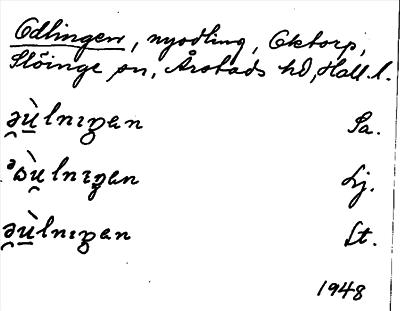 Odlingen, nyodling, Oktorp,
Slöinge sn, Årstads hd, Hall. l.
ə̯ùlnɪŋan Sa.
ᵊɷ̀u̯lnɪŋən Lj.
ə̯ùlnɪŋan Lt.
1948